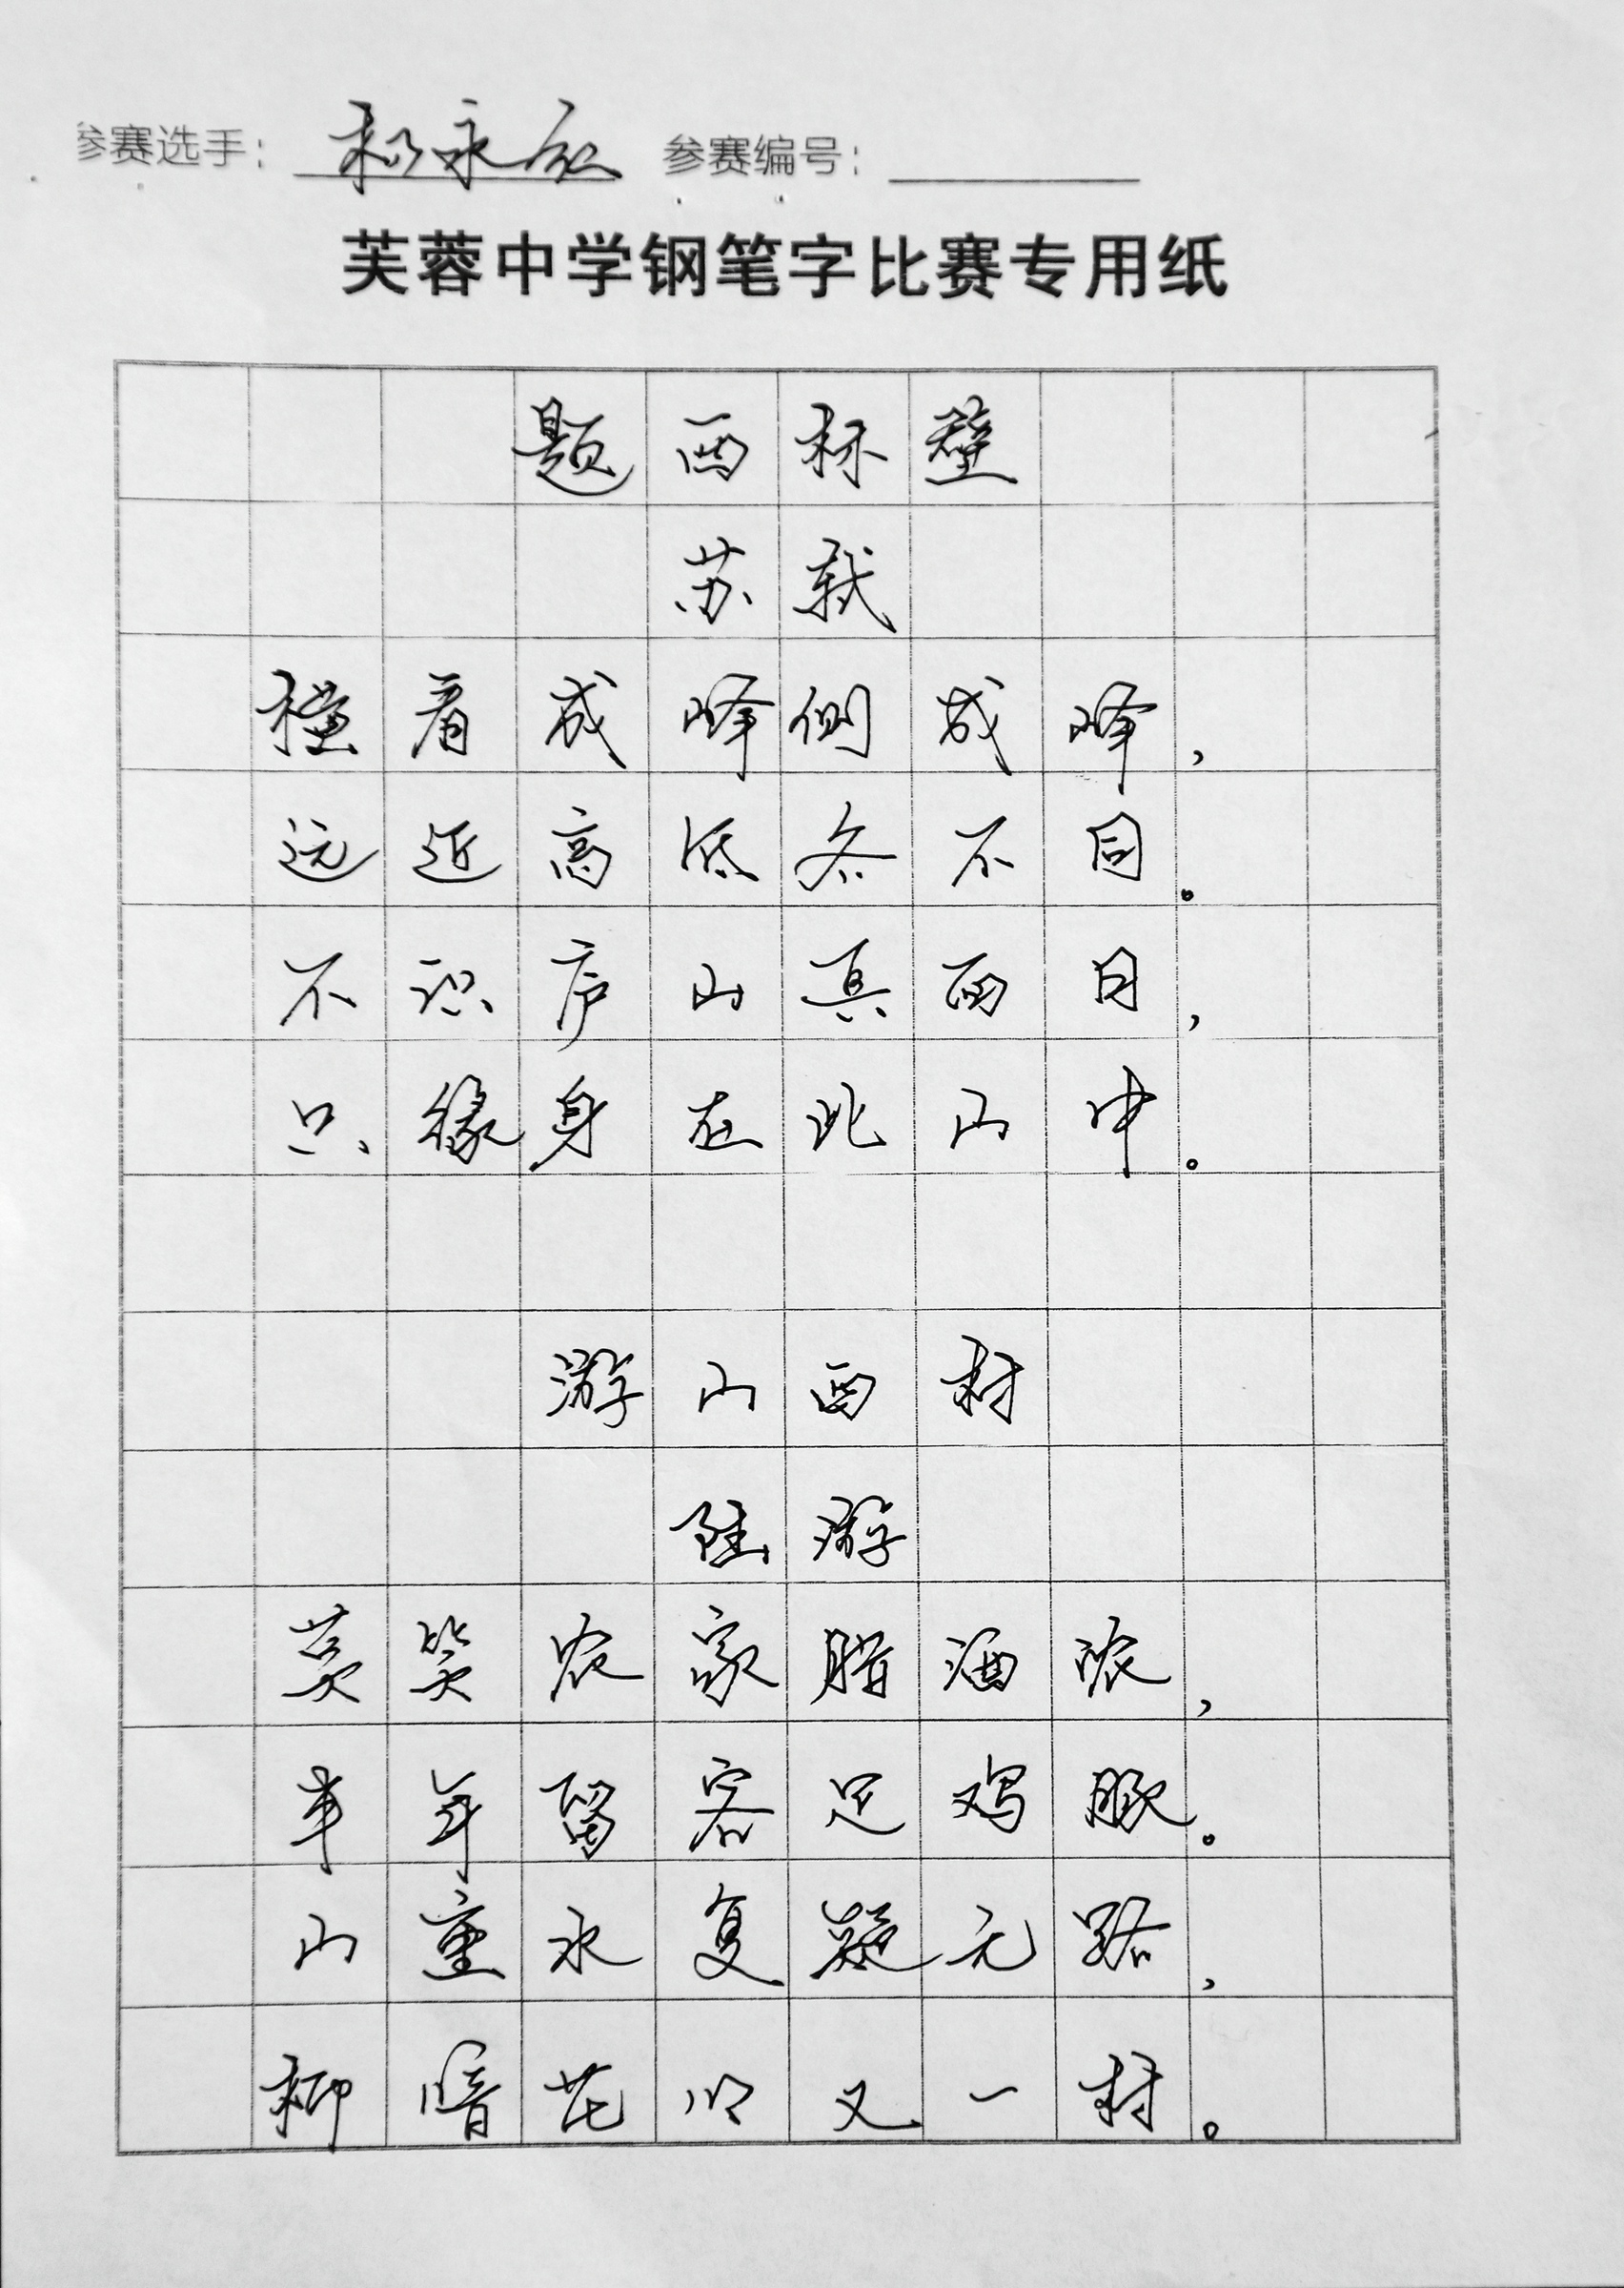 参赛选手： 参赛编号：
芙蓉中学钢笔字比赛专用纸
题西林壁
苏轼
横看成峰侧成峰，
远近高低各不同。
不识庐山真面目，
只缘身在此山中。
游山西村
陆游
莫笑农家腊酒浓，
丰年留客足鸡豚。
山重水复疑无路，
柳暗花明又一村。